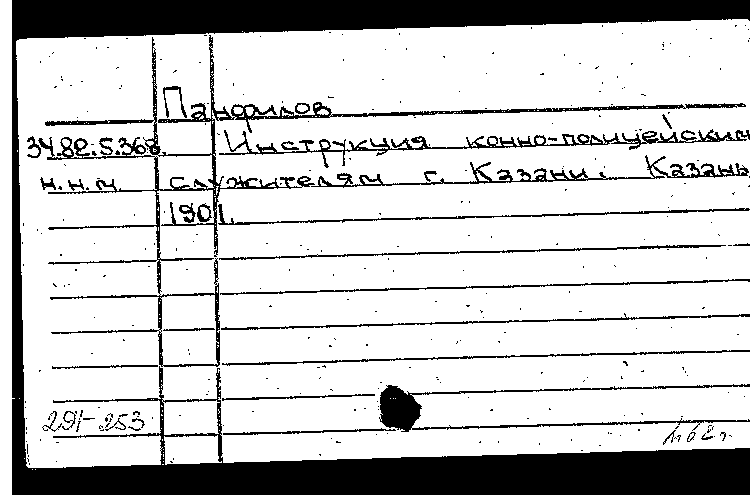 Панфилов
34.8е.5.368. Инструкция конно-полицейским
н.н.м. служителям г. Казани. Казань
1901.
291-253